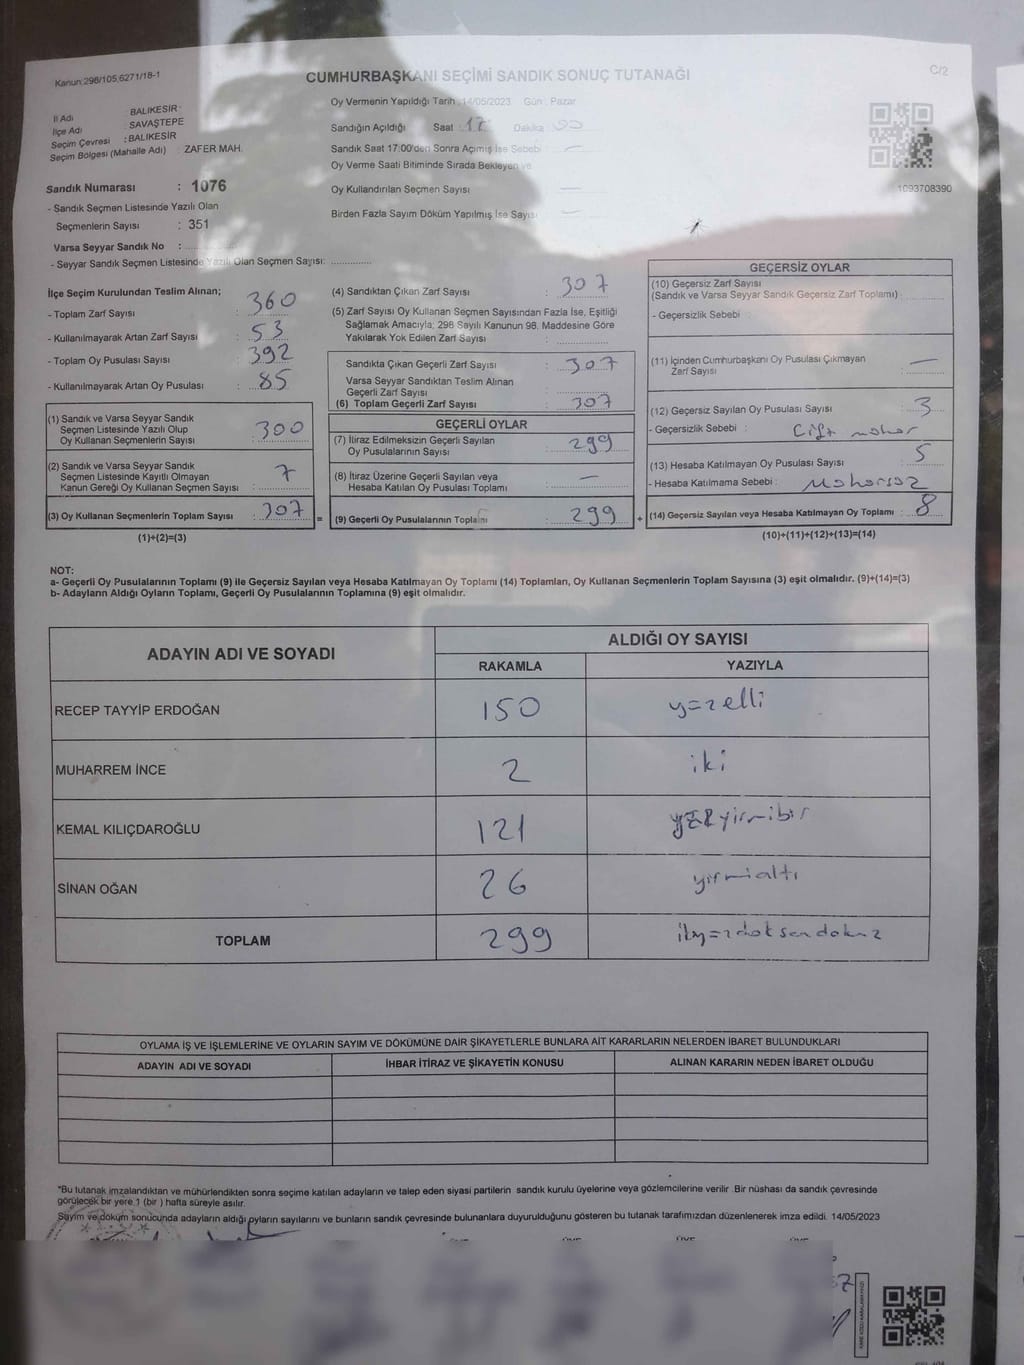 Kanun:298/105,6271/18-1
CUMHURBAŞKANI SEÇİMİ SANDIK SONUÇ TUTANAĞI
C/2
İl Adı BALIKESİR
İlçe Adı SAVAŞTEPE
Seçim Çevresi : BALIKESİR
Seçim Bölgesi (Mahalle Adı) : ZAFER MAH.
Oy Vermenin Yapıldığı Tarih : 14/05/2023 Gün : Pazar
Sandığın Açıldığı Saat : Dakika :
Sandık Saat 17:00'den Sonra Açımış İse Sebebi :
Oy Verme Saati Bitiminde Sırada Bekleyen ve
Oy Kullandırılan Seçmen Sayısı
Birden Fazla Sayım Döküm Yapılmış İse Sayısı
1093708390
Sandık Numarası : 1076
- Sandık Seçmen Listesinde Yazılı Olan
Seçmenlerin Sayısı : 351
Varsa Seyyar Sandık No :
- Seyyar Sandık Seçmen Listesinde Yazılı Olan Seçmen Sayısı:
İlçe Seçim Kurulundan Teslim Alınan;
- Toplam Zarf Sayısı : 360
- Kullanılmayarak Artan Zarf Sayısı : 53
- Toplam Oy Pusulası Sayısı : 392
- Kullanılmayarak Artan Oy Pusulası : 85
(1) Sandık ve Varsa Seyyar Sandık
Seçmen Listesinde Yazılı Olup
Oy Kullanan Seçmenlerin Sayısı : 300
(2) Sandık ve Varsa Seyyar Sandık
Seçmen Listesinde Kayıtlı Olmayan
Kanun Gereği Oy Kullanan Seçmen Sayısı : 7
(3) Oy Kullanan Seçmenlerin Toplam Sayısı : 307
(1)+(2)=(3)
(4) Sandıktan Çıkan Zarf Sayısı : 307
(5) Zarf Sayısı Oy Kullanan Seçmen Sayısından Fazla İse, Eşitliği
Sağlamak Amacıyla; 298 Sayılı Kanunun 98. Maddesine Göre
Yakılarak Yok Edilen Zarf Sayısı :
Sandıkta Çıkan Geçerli Zarf Sayısı : 307
Varsa Seyyar Sandıktan Teslim Alınan
Geçerli Zarf Sayısı :
(6) Toplam Geçerli Zarf Sayısı : 307
GEÇERLİ OYLAR
(7) İtiraz Edilmeksizin Geçerli Sayılan
Oy Pusulalarının Sayısı : 299
(8) İtiraz Üzerine Geçerli Sayılan veya
Hesaba Katılan Oy Pusulası Toplamı : —
= (9) Geçerli Oy Pusulalarının Toplamı : 299 +
GEÇERSİZ OYLAR
(10) Geçersiz Zarf Sayısı
(Sandık ve Varsa Seyyar Sandık Geçersiz Zarf Toplamı) :
- Geçersizlik Sebebi :
(11) İçinden Cumhurbaşkanı Oy Pusulası Çıkmayan
Zarf Sayısı : —
(12) Geçersiz Sayılan Oy Pusulası Sayısı : 3
- Geçersizlik Sebebi : Çift mühür
(13) Hesaba Katılmayan Oy Pusulası Sayısı : 5
- Hesaba Katılmama Sebebi : Mühürsüz
(14) Geçersiz Sayılan veya Hesaba Katılmayan Oy Toplamı : 8
(10)+(11)+(12)+(13)=(14)
NOT:
a- Geçerli Oy Pusulalarının Toplamı (9) ile Geçersiz Sayılan veya Hesaba Katılmayan Oy Toplamı (14) Toplamları, Oy Kullanan Seçmenlerin Toplam Sayısına (3) eşit olmalıdır. (9)+(14)=(3)
b- Adayların Aldığı Oyların Toplamı, Geçerli Oy Pusulalarının Toplamına (9) eşit olmalıdır.
ADAYIN ADI VE SOYADI
ALDIĞI OY SAYISI
RAKAMLA YAZIYLA
RECEP TAYYİP ERDOĞAN 150 yüzelli
MUHARREM İNCE 2 iki
KEMAL KILIÇDAROĞLU 121 yüzyirmibir
SİNAN OĞAN 26 yirmialtı
TOPLAM 299 ikiyüzdoksandokuz
OYLAMA İŞ VE İŞLEMLERİNE VE OYLARIN SAYIM VE DÖKÜMÜNE DAİR ŞİKAYETLERLE BUNLARA AİT KARARLARIN NELERDEN İBARET BULUNDUKLARI
ADAYIN ADI VE SOYADI İHBAR İTİRAZ VE ŞİKAYETİN KONUSU ALINAN KARARIN NEDEN İBARET OLDUĞU
*Bu tutanak imzalandıktan ve mühürlendikten sonra seçime katılan adayların ve talep eden siyasi partilerin sandık kurulu üyelerine veya gözlemcilerine verilir. Bir nüshası da sandık çevresinde
görülecek bir yere 1 (bir ) hafta süreyle asılır.
Sayım ve döküm sonucunda adayların aldığı oyların sayılarını ve bunların sandık çevresinde bulunanlara duyurulduğunu gösteren bu tutanak tarafımızdan düzenlenerek imza edildi. 14/05/2023